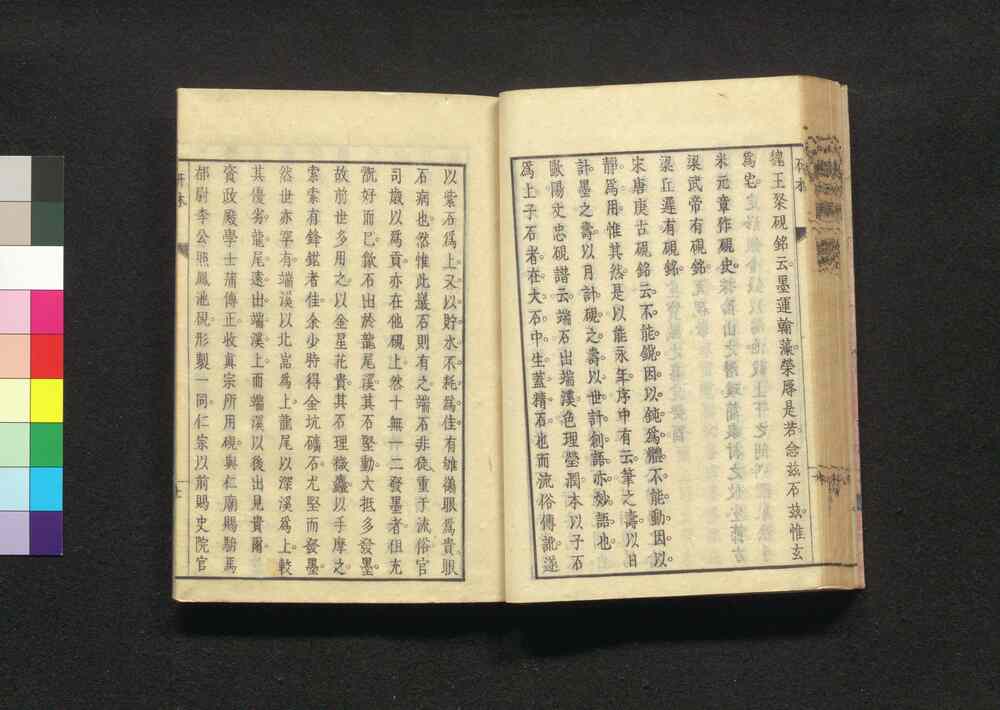 魏王粲硯銘云墨運翰藻榮辱是若念茲在茲惟玄
爲宅
米元章作硯史
梁武帝有硯銘
梁丘遲有硯銘
宋唐庚古硯銘云不能銳因以鈍爲體不能動因以
靜爲用惟其然是以能永年序中有云筆之壽以日
計墨之壽以月計硯之壽以世計創語亦妙語也
歐陽文忠硯譜云端石出端溪色理瑩潤本以子石
爲上子石者在大石中生蓋精石也而流俗傳訛遂
以紫石爲上又以貯水不耗爲佳有鴝鵒眼爲貴眼
石病也然惟此巖石則有之端石非徒重于流俗官
司歲以爲貢亦在他硯上然十無一二發墨者但充
翫好而已歙石出於龍尾溪其石堅勁大抵多發墨
故前世多用之以金星花貴其石理微麤以手摩之
索索有鋒鋩者佳余少時得金坑礦石尤堅而發墨
然世亦罕有端溪以北巖爲上龍尾以深溪爲上較
其優劣龍尾遠出端溪上而端溪以後出見貴爾
資政殿學士蒲傳正收真宗所用硯與仁廟賜駙馬
都尉李公炤鳳池硯形製一同仁宗以前賜史院官